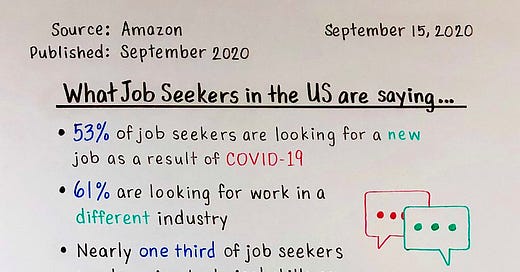 Source: Amazon
September 15, 2020
Published: September 2020
What Job Seekers in the US are saying...
• 53% of job seekers are looking for a new
job as a result of COVID-19
• 61% are looking for work in a
different industry
• Nearly one third of job seekers